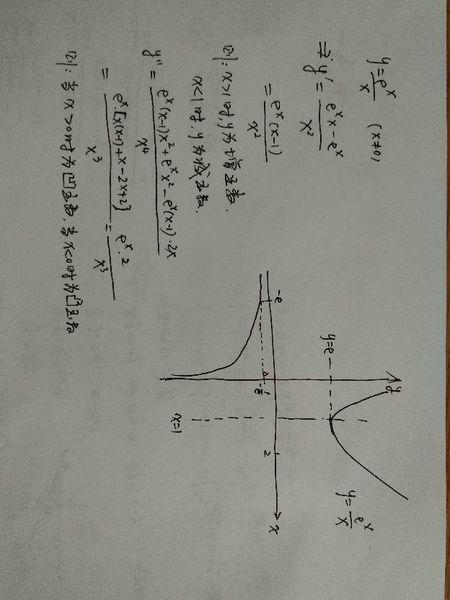 y = e^x/x (x≠0)
⇒ y' = (e^x x - e^x)/x²
= e^x(x-1)/x²
则: x>1时, y为增函数.
x<1时, y为减函数.
y'' = (e^x(x-1)x² + e^x x² - e^x(x-1)·2x)/x⁴
= e^x·[x(x-1)+x-2x+2]/x³ = e^x·2/x³
则: 当x>0时为凹函数, 当x<0时为凸函数
y
y = e^x/x
y=e
-e
-1/e
2
x
x=1